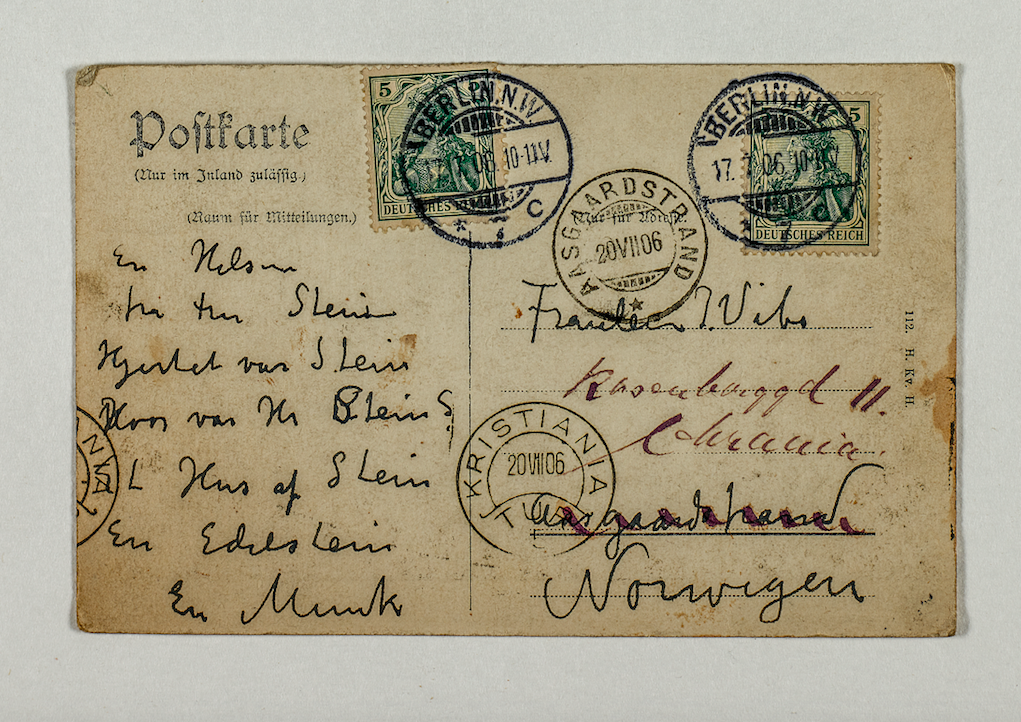 Postkarte
(Nur im Inland zulässig.)
(Raum für Mitteilungen.)
(Nur für Adresse.)
5
DEUTSCHES REICH
BERLIN.N.W
17. 7. 06. 10-11V.
* c
5
DEUTSCHES REICH
BERLIN.N.W
17. 7. 06. 10-11V.
* c
AASGAARDSTRAND
20 VII 06
En Hilsen
fra Stein
Hjertet var Stein
var Stein
Hus af Stein
En Edelstein
En Munk
Fräulein I. Vibe
Rosenborggd 11.
Chrania.
Aasgaardstrand
Norwegen
KRISTIANIA
20 VII 06
TUR
112. H. Kv. H.